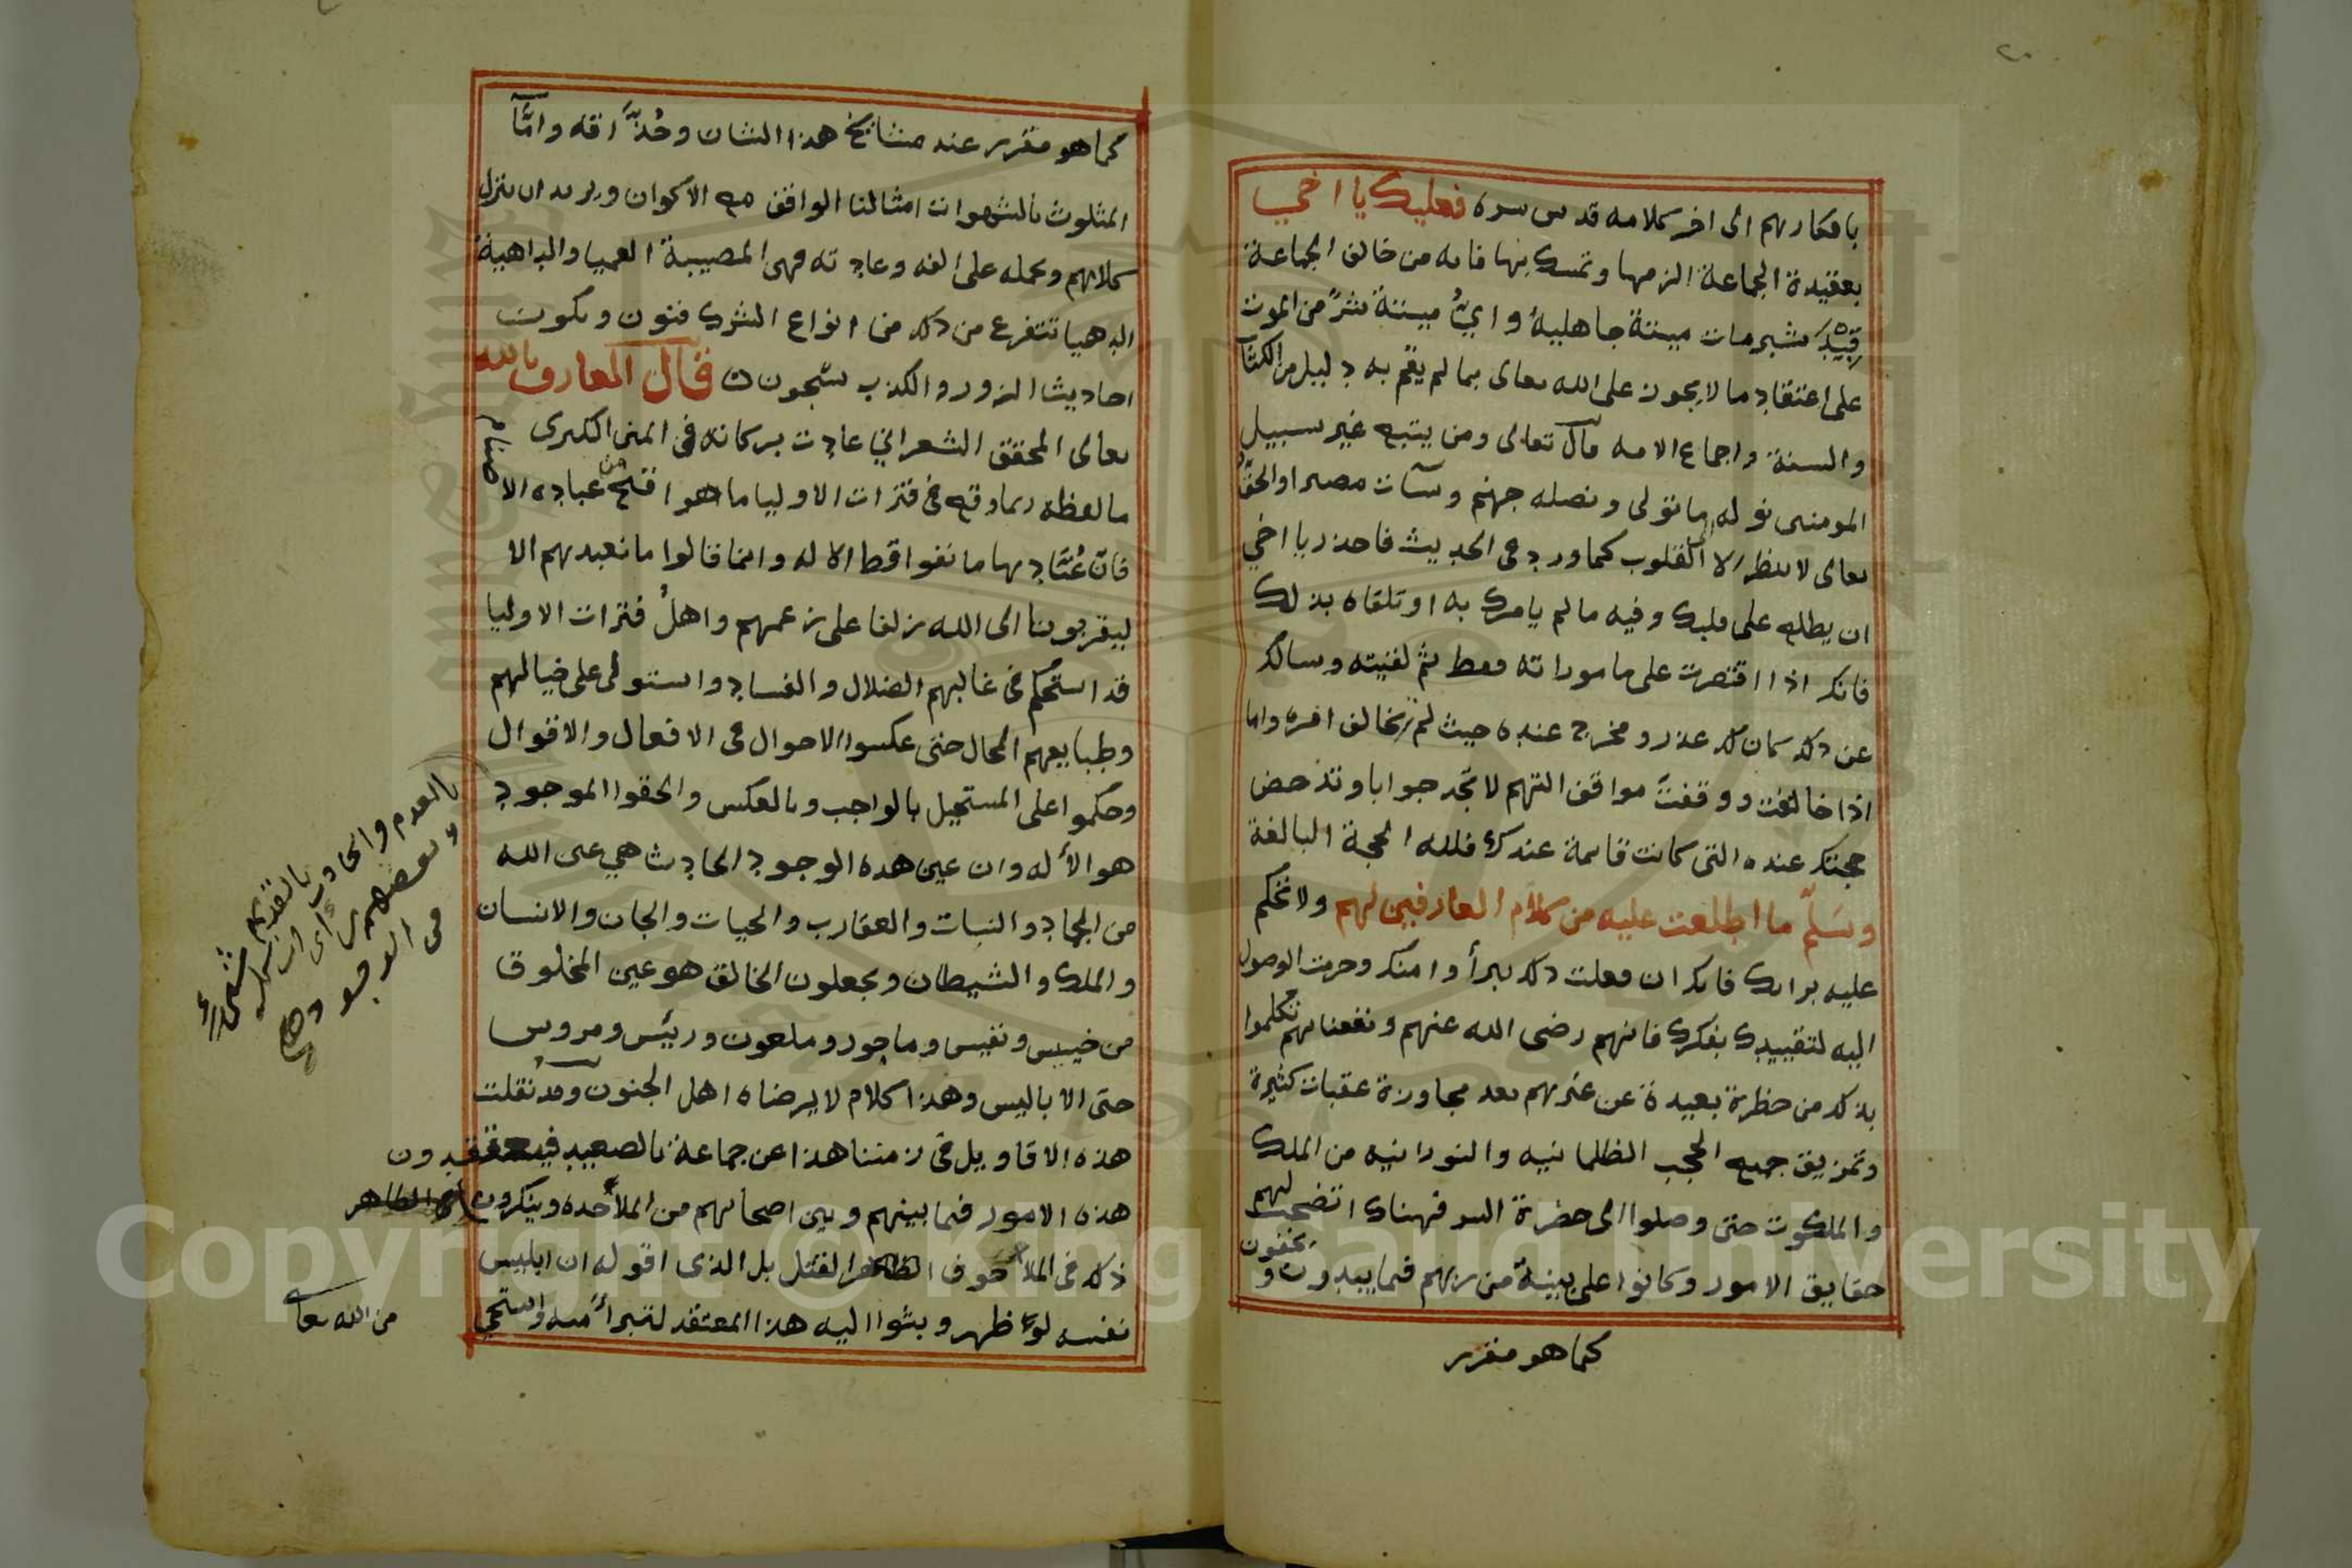 ٢٠
بافكارهم الى اخر كلامه قدس سره فعليك يا اخي
بعقيدة الجماعة الزمها وتمسك بها فانه من خالف الجماعة
قيد شبر مات ميتة جاهلية واي ميتة شر من الموت
على اعتقاد ما لا يجوز على الله تعالى بما لم يقم به دليل من الكتاب
والسنة واجماع الامه قال تعالى ومن يتبع غير سبيل
المومنين نوله ما تولى ونصله جهنم وسآت مصيرا والحق
تعالى لا ينظر الا الى القلوب كما ورد في الحديث فاحذر يا اخي
ان يطلع على قلبك وفيه ما لم يامرك به او تلقاه بذلك
فانك اذا اقتصرت على ماموراته فقط ثم لقيته وسالك
عن ذلك كان لك عذر ومخرج عنده حيث لم تخالف امره واما
اذا خالفت ووقفت مواقف التهم لا تجد جوابا وتدحض
حجتك عنده التى كانت قايمة عندك فلله الحجة البالغة
وسلم ما اطلعت عليه من كلام العارفين لهم ولا تحكم
عليه برايك فانك ان فعلت ذلك تبرأ وامنك وحرمت الوصول
اليه لتقييدك بفكرك فانهم رضى الله عنهم ونفعنا بهم تكلموا
بذلك من حظرة بعيدة عن غيرهم بعد مجاوزة عقبات كثيرة
وتمزيق جميع الحجب الظلمانيه والنورانيه من الملك
والملكوت حتى وصلوا الى حضرة السر فهناك اتضحت لهم
حقايق الامور وكانوا على بينة من ربهم فيما يبدون و يخفون
كما هو مقرر
كما هو مقرر عند مشايخ هذا الشان وحذاقه وامّا
المثلوث بالشهوات امثالنا الواقف مع الاكوان ويريد ان ينزل
كلامهم ويحمله على الفه وعادته فهى المصيبة العميا والداهية
الدهيا تتفرع من ذلك من انواع الشرك فنون ويكون
احاديث الزور والكذب شجون قال العارف بالله
تعالى المحقق الشعراني عادت بركاته فى المنن الكبرى
ما لفظه ربما وقع فى فترات الاوليا ما هو اقبح من عبادة الاصنام
فان عبّادها ما نفوا قط الاله وانما قالوا ما نعبدهم الا
ليقربونا الى الله زلفا على زعمهم واهل فترات الاوليا
قد استحكم فى غالبهم الضلال والفساد واستولى على خيالهم
وطبايعهم المحال حتى عكسوا الاحوال فى الافعال والاقوال
وحكموا على المستحيل بالواجب وبالعكس والحقوا الموجود
بالعدم والحادث بالقديم
وبعضهم راى ان ليس
فى الوجود شىء
هو الأله وان عين هذه الوجود الحادث هي عين الله
من الجماد والنبات والعقارب والحيات والجان والانسان
والملك والشيطان ويجعلون الخالق هو عين المخلوق
من خسيس ونفيس وماجور وملعون ورئيس ومروس
حتى الا باليس وهذا كلام لا يرضاه اهل الجنون وقد نقلت
هذه الاقاويل فى زمننا هذا عن جماعة بالصعيد فيعتقدون
هذه الامور فيما بينهم وبين اصحابهم من الملاحده وينكرون
ذلك فى الملا خوف القتل بل الذى اقوله ان ابليس
نفسه لو ظهر وبثوا اليه هذا المعتقد لتبرأ منه واستحى
من الله تعالى
Copyright © King Saud University